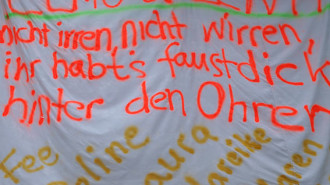 nicht irren, nicht wirren,
ihr habt's faustdick
hinter den Ohren
Fee
Laura
Mareike